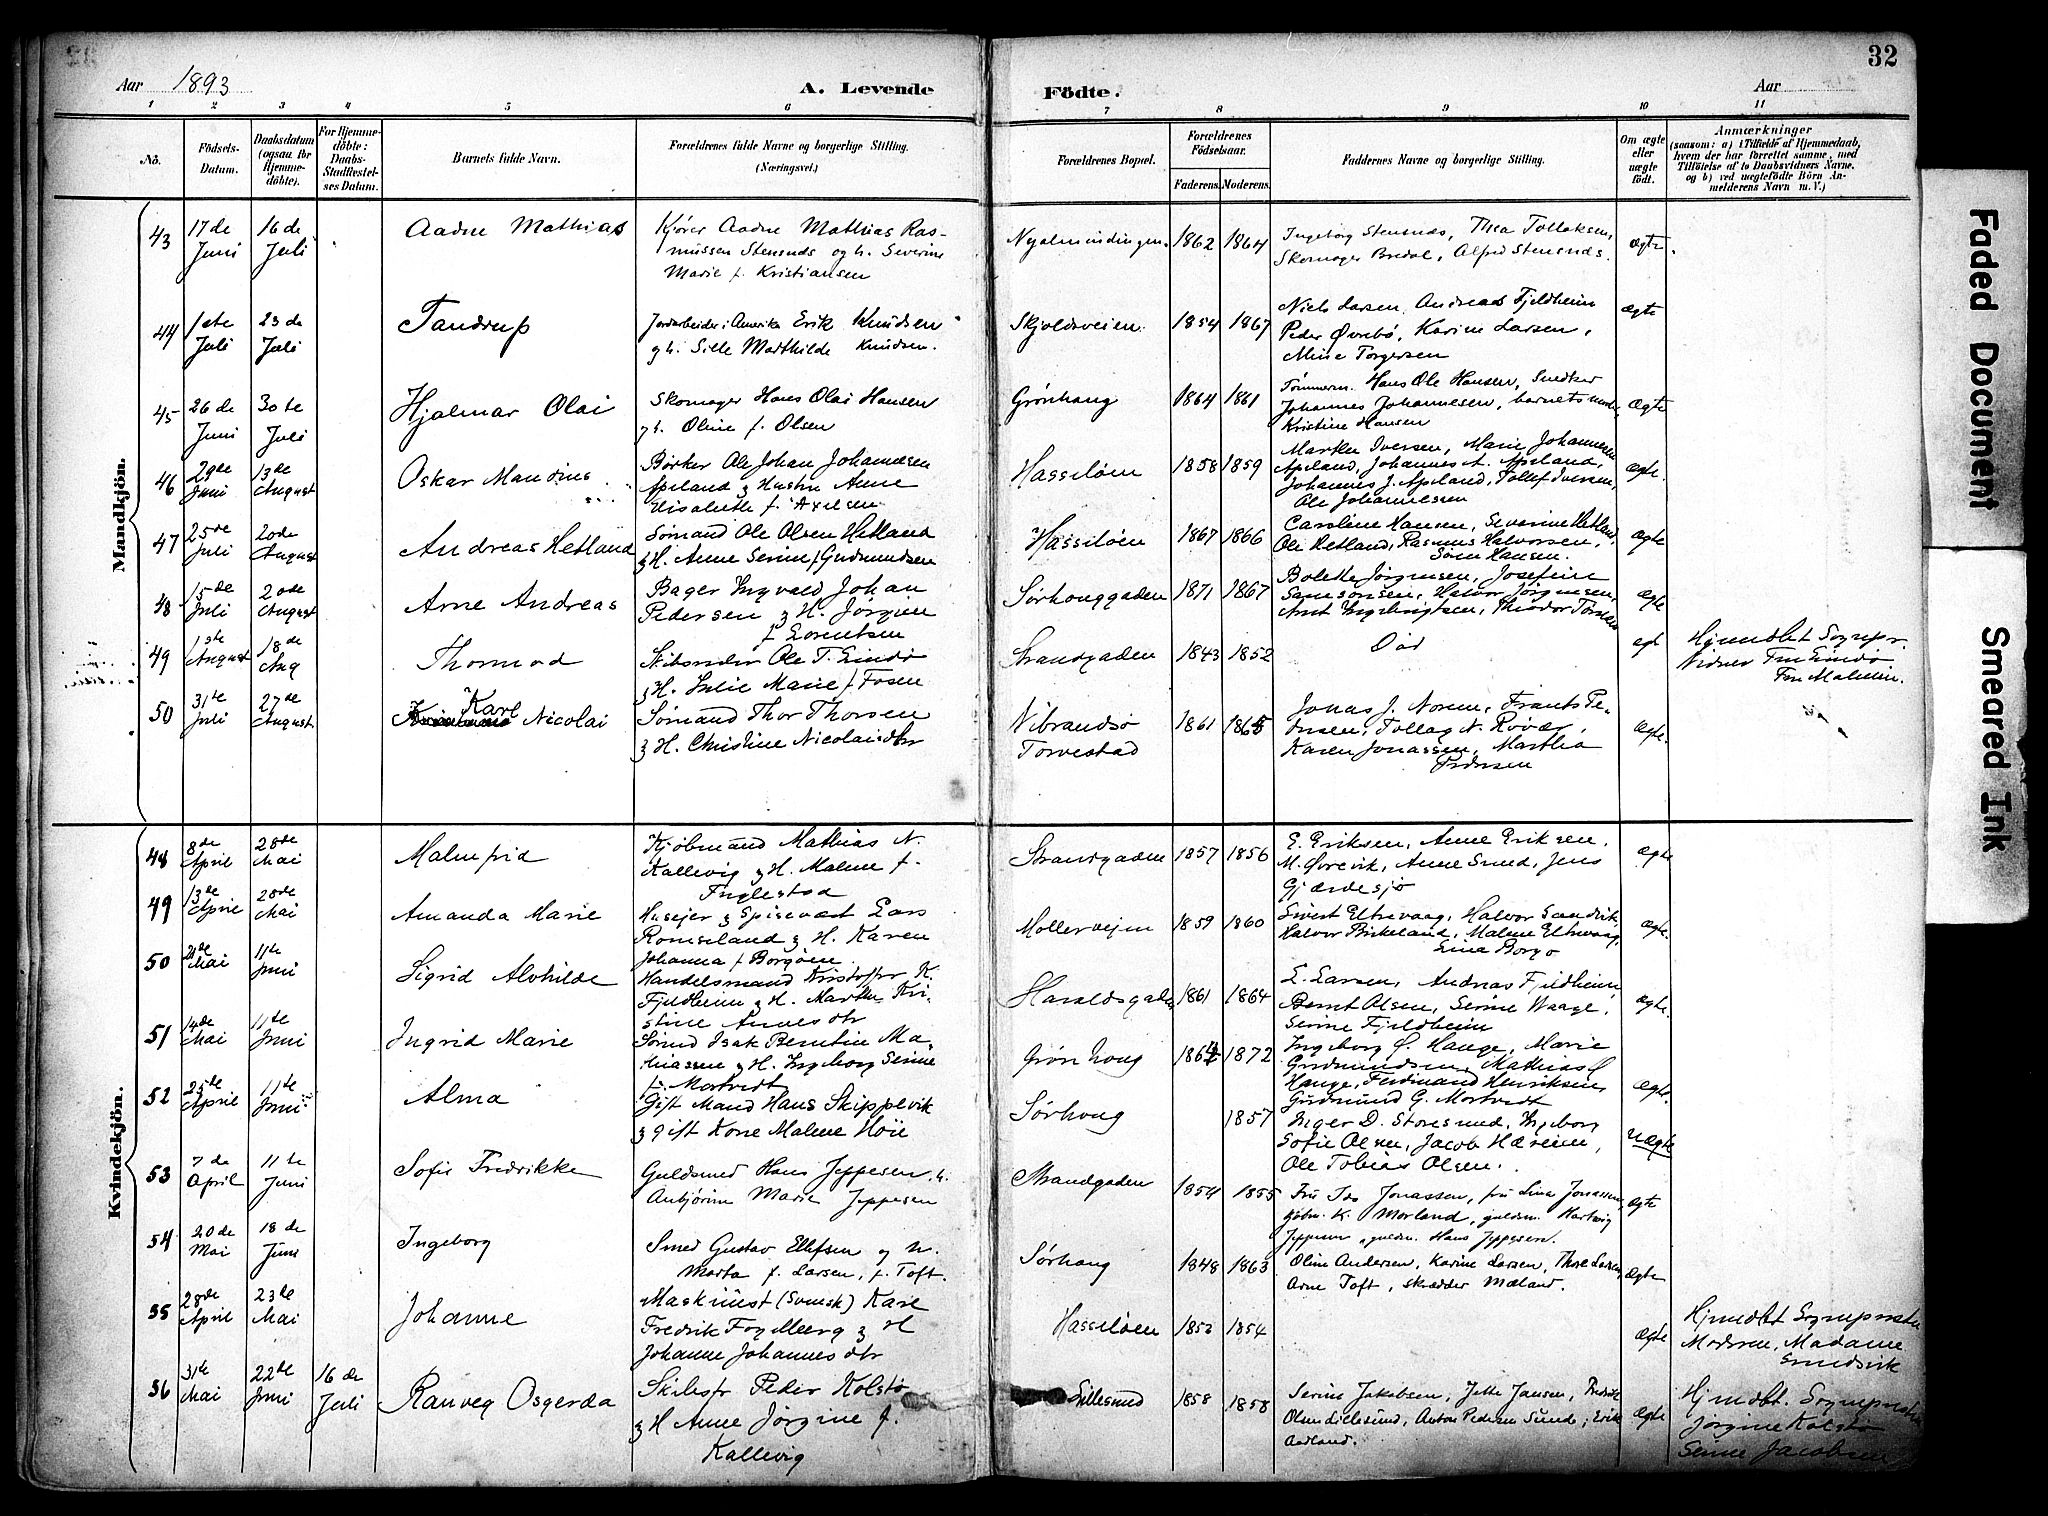 32
Aar 1893
A. Levende
Födte.
Aar
1 2 3 4 5 6 7 8 9 10 11
No.
Födsels-
Datum.
Daabsdatum
(ogsaa for
Hjemme-
döbte).
For Hjemme-
döbte:
Daabs-
Stadfæstel-
ses Datum.
Barnets fulde Navn.
Forældrenes fulde Navne og borgerlige Stilling.
(Næringsvei.)
Forældrenes Bopæl.
Forældrenes
Födselsaar.
Faderens.
Moderens.
Faddernes Navne og borgerlige Stilling.
Om ægte
eller
uægte
födt.
Anmærkninger
(saasom: a) i Tilfælde af Hjemmedaab,
hvem der har forrettet samme, med
Tilföielse af to Daabsvidners Navne.
og b) ved uægtefödte Börn An-
melderens Navn m. V.)
Mandkjön.
43
17de
Juni
16de
Juli
Aadne Mathias
Kjører Aadne Mathias Ras-
mussen Stensnds og h. Severine
Marie f. Kristiansen
Nyalmindingen
1862 1864
Ingeborg Stensnds, Thea Tollaksen,
Skomager Bredal, Alfred Stensnds.
ægte
44
1ste
Juli
23de
Juli
Tandrup
Jordarbeider i Amerika Erik Knudsen
og h. Sille Mathilde Knudsen.
Skjoldsveien
1854 1867
Niels Larsen, Andreas Fjeldheim
Peder Øvrebö, Karine Larsen,
Mine Torgersen
ægte
45
26de
Juni
30te
Juli
Hjalmar Olai
Skomager Hans Olai Hansen
og h. Oline f. Olsen
Grönhaug
1864 1861
Tömmerm. Hans Ole Hansen, Snedker
Johannes Johannesen, barnets moder,
Kristine Hansen
ægte
46
29de
Juni
13de
August
Oskar Mandius
Børker Ole Johan Johannesen
Apeland & Hustru Anne
Elisabeth f. Axelsen
Hasseløen
1858 1859
Marthe Iversen, Marie Johannesen
Apeland, Johannes A. Apeland,
Johannes J. Apeland, Tollef Iversen,
Ole Johannessen
ægte.
47
25de
Juli
20de
August
Andreas Hetland
Sømand Ole Olsen Hetland
& H. Anne Serine f. Gudmundsen
Hasseløen
1867 1866
Caroline Hansen, Severine Hetland,
Ole Hetland, Rasmus Halvorsen,
Sören Hansen.
ægte
48
15de
Juli
20de
August
Arne Andreas
Bager Ingvald Johan
Pedersen & H. Jørgine
f. Lorentsen
Sørhauggaden
1871 1867
Bolette Jörgensen, Josefine
Samsonsen, Halvor Jörgensen,
Arnt Ingebrigtsen, Theodor
ægte
49
1ste
August
18de
Aug
Thormod
Skibsreder Ole T. Lindø
& H. Julie Marie f. Fosen
Strandgaden
1843 1852
Död
egt
Hjemdöbt Sognepr.
Vidner Fru Lindø
50
31te
Juli
27de
August
Karl
Nicolai
Sømand Thor Thorsen
& H. Christine Nicolaidtr
Vibrandsö
Torvestad
1861 1865
Jonas J. Norem, Frants Pe-
dersen, Tollag N. Røvær,
Karen Jonassen, Martha
Pedersen
ægte.
Kvindekjön.
48
8de
April
28de
Mai
Malmfrid
Kjöbmand Mathias N.
Kallevig & H. Malene f.
Fuglestad
Strandgaden
1857 1856
E. Eriksen, Anne Eriksen.
M. Qvrevik, Anne Smed, Jens
Gjærdesjö
ægte
49
13de
April
28de
Mai
Amanda Marie
Husejer & Spisevært Lars
Romseland & H. Karen
Johanna f. Borgöen.
Møllervejen
1859 1860
Sivert Eltrevaag, Halvor Sandvik,
Halvor Birkeland, Malene Eltrevaag,
Lina Borgø
ægte.
50
21de
Mai
11te
Juni
Sigrid Alvhilde
Handelsmand Kristoffer K.
Fjeldheim & H. Marthe Kri-
stine Andersdtr
Haraldsgaden
1861 1864
L. Larsen, Andreas Fjeldheim
Bernt Olsen, Serine Waage,
Serine Fjeldheim
ægte.
51
14de
Mai
11te
Juni
Ingrid Marie
Sömd Isak Bentin Ma-
thiassen & H. Ingeborg Serine
f. Mortvedt
Grönhaug
1864 1872
Ingeborg O. Hauge, Marie
Gudmundsen, Mathias O
Hauge, Ferdinand Henriksen,
Gudmund G. Mortvedt
ægte.
52
25de
April
11te
Juni
Alma
Gift Mand Hans Skippevik
& gift Kone Malene Höie
Sørhaug
1857
Inger D. Storesund, Ingeborg
Sofie Olsen, Jacob Hæreim,
Ole Tobias Olsen.
uægte
53
7de
April
11te
Juni
Sofie Fredrikke
Guldsmed Hans Jeppesen, h.
Anbjörine Marie Jeppesen
Strandgaden
1854 1855
Fru Ida Jonassen, fru Lina Jonassen,
kjöbm. K. Morland, guldsm. Hartvig
Jeppesen, guldsm. Hans Jeppesen.
ægte
54
20de
Mai
18de
Juni
Ingeborg
Smed Gustav Ellefsen og h.
Marta f. Larsen, f. Toft.
Sørhaug
1848 1863
Oline Andersen, Karine Larsen, Thore Larsen,
Arne Toft, skrædder Mæland.
ægte
55
28de
April
23de
Mai
Johanne
Maskinist (Svensk) Karl
Fredrik Foglberg & H
Johanne Johannesdtr
Hasseløen
1852 1854
ægte
Hjemdöbt Sognepresten
Moderen, Madame
Smedsvik
56
31te
Mai
22de
Juni
16de
Juli
Ranveg Osgerda
Skibsfr Peder Kolstø
& H Anne Jørgine f.
Kallevig
Lillesund
1858 1858
Serine Jakobsen, Jette Jansen, Fredrik
Olsen Lillesund, Anton Pedersen Sunde, Erik
Aadland.
ægte
Hjemdöbt. Sognepresten
Jørgine Kolstø
Serine Jacobsen
Faded Document
Smeared Ink